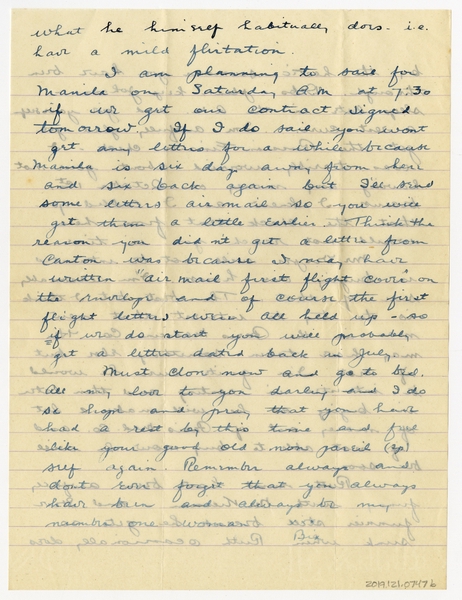 what he himself habitually does. i.e.
have a mild flirtation.
I am planning to sail for
Manila on Saturday A.M. at 7:30
if we get our contract signed
tomorrow. If I do sail you wont
get any letters for a while because
Manila is six days away from here
and six back again but I'll send
some letters air mail so you will
get them a little earlier. Think the
reason you didn't get a letter from
Canton was because I may have
written "air mail first flight cover" on
the envelope and of course the first
flight letters were all held up - so
if we do start you will probably
get a letter dated back in July.
Must close now and go to bed.
All my love to you darling and I do
so hope and pray that you have
had a rest by this time and feel
like your good old non pareil (sp)
self again. Remember always and
dont ever forget that you always
have been and always be my
number one woman
Bix
2019.121.0747b